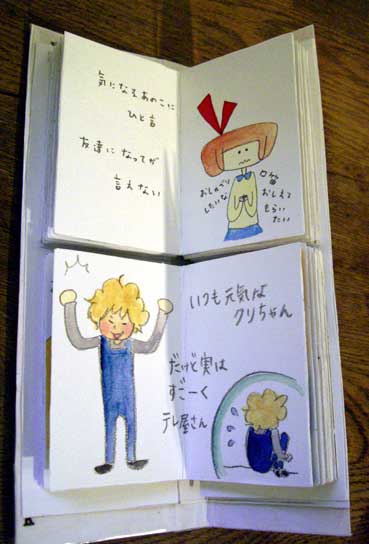 気になるあのこに
ひと言
友達になってが
言えない
おしゃべり
したいな
口笛
おしえて
もらい
たい
いつも元気な
クリちゃん
だけど実は
すごーく
テレ屋さん